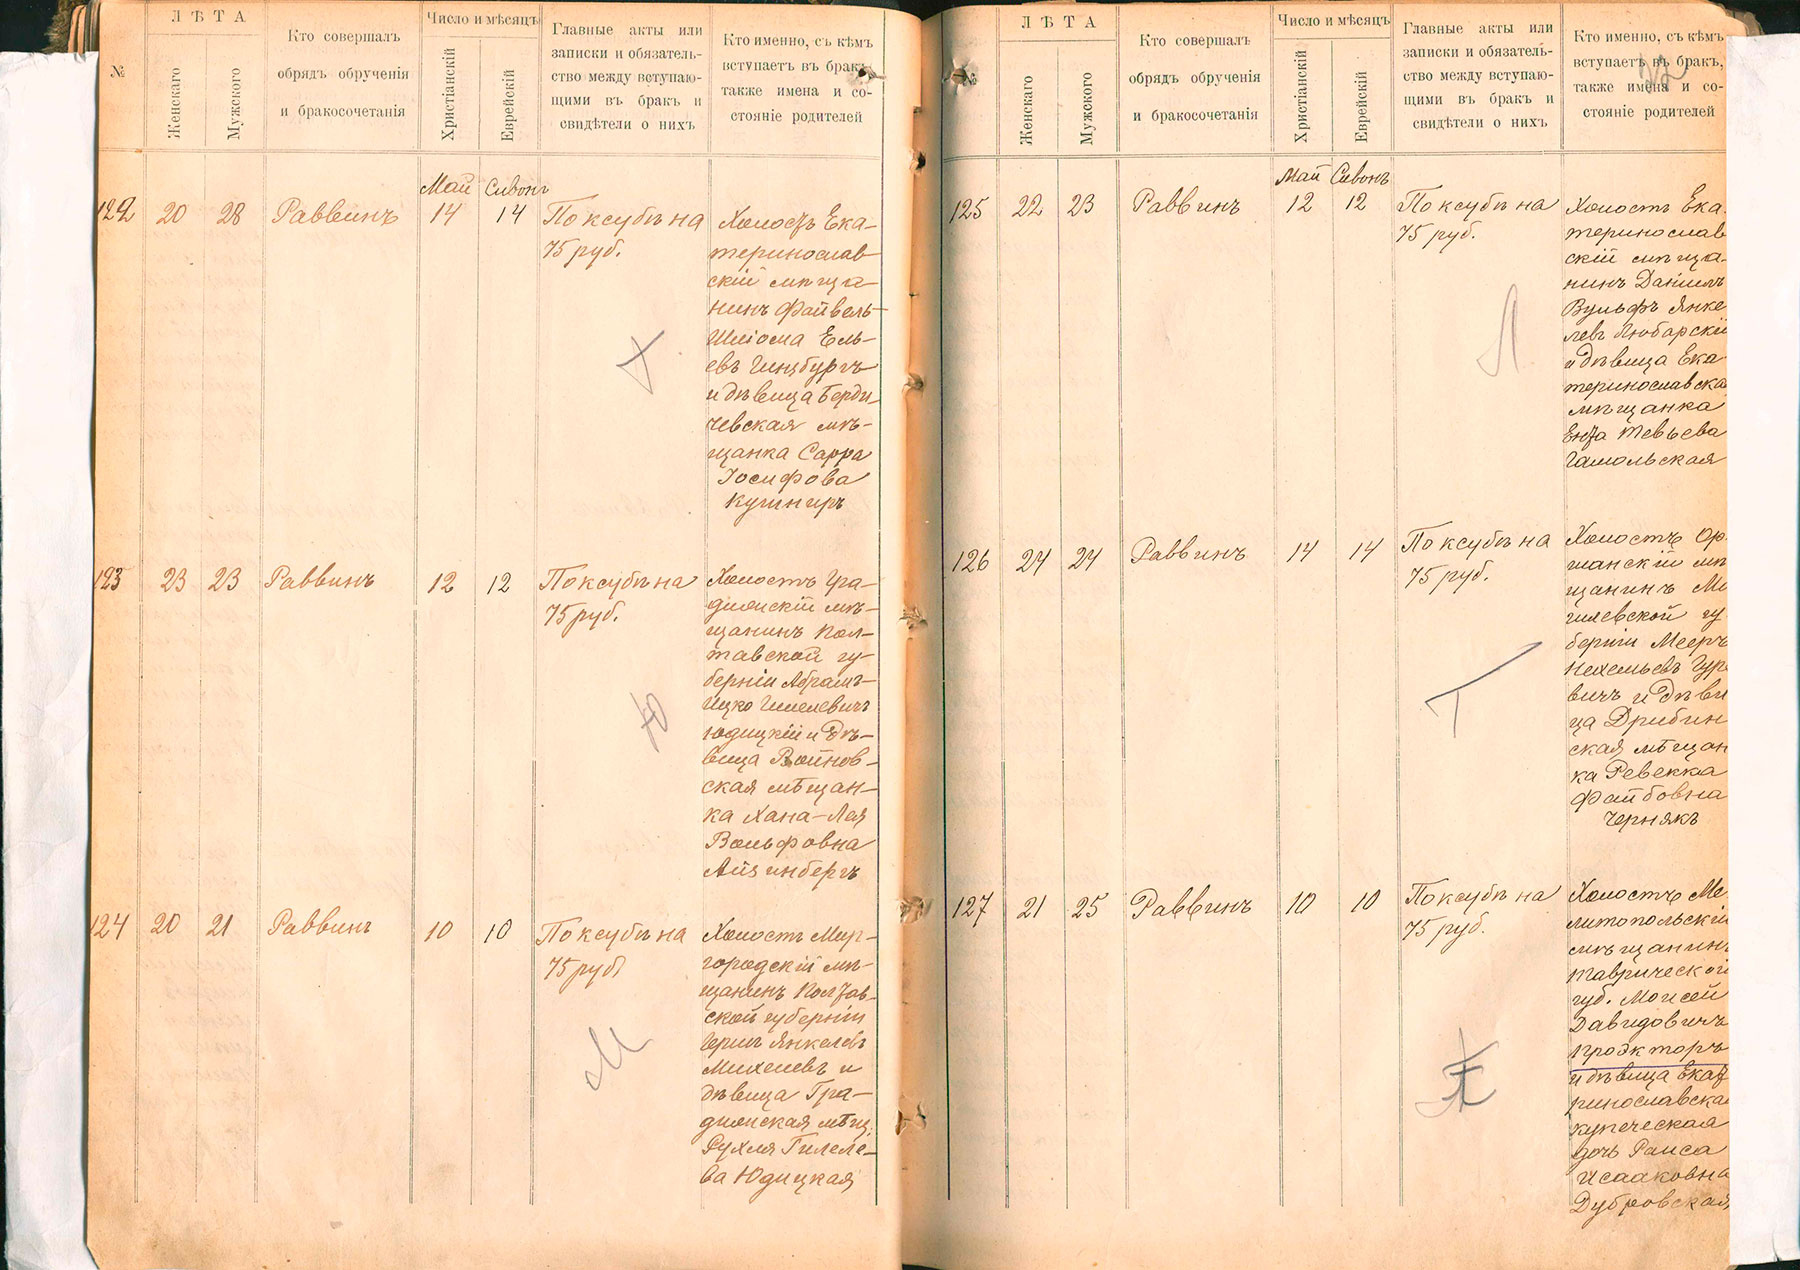 ЛѢТА
Число и мѣсяцъ
№
Женскаго
Мужского
Кто совершалъ
обрядъ обрученія
и бракосочетанія
Христіанскій
Еврейскій
Главные акты или
записки и обязатель-
ство между вступаю-
щими въ бракъ и
свидѣтели о нихъ
Кто именно, съ кѣмъ
вступаетъ въ бракъ,
также имена и со-
стояніе родителей
Май Сивонъ
122 20 28 Раввинъ 14 14
По ксубѣ на
75 руб.
Холостъ Ека-
теринослав
скій мѣща-
нинъ Файвель-
Шлiома Ель-
евъ Гинзбургъ
и дѣвица Берди-
чевская мѣ-
щанка Сарра
Iосифова
Кушниръ
Х
123 23 23 Раввинъ 12 12
По ксубѣ на
75 руб.
Холостъ Гра-
дижскій мѣ-
щанинъ Пол-
тавской гу-
берніи Абрамъ-
Ицко Гилелевичъ
Юдицкій и дѣ-
вица Войнов-
ская мѣщан-
ка Хана-Лея
Вольфовна
Айзинбергъ
Ю
124 20 21 Раввинъ 10 10
По ксубѣ на
75 руб
Холостъ Мир-
городскій мѣ-
щанинъ Полтав-
ской губерніи
Гершъ Янкелевъ
Михелевъ и
дѣвица Гра-
дижская мѣщ.
Рухля Гилеле-
ва Юдицкая
М
ЛѢТА
Число и мѣсяцъ
№
Женскаго
Мужского
Кто совершалъ
обрядъ обрученія
и бракосочетанія
Христіанскій
Еврейскій
Главные акты или
записки и обязатель-
ство между вступаю-
щими въ бракъ и
свидѣтели о нихъ
Кто именно, съ кѣмъ
вступаетъ въ бракъ,
также имена и со-
стояніе родителей
Май Сивонъ
125 22 23 Раввинъ 12 12
По ксубѣ на
75 руб.
Холостъ Ека-
теринослав
скій мѣща-
нинъ Даніилъ
Вульфъ Янке
левъ Любарскій
и дѣвица Ека
теринославская
мѣщанка
Ента Тевьева
Гамольская
Л
126 24 24 Раввинъ 14 14
По ксубѣ на
75 руб.
Холостъ Ор-
шанскій мѣ
щанинъ Мо
гилевской гу
берніи Мееръ
Нехемьевъ Гур
вичъ и дѣви
ца Дрибин
ская мѣщан
ка Ревекка
Файбовна
Чернякъ
Г
127 21 25 Раввинъ 10 10
По ксубѣ на
75 руб.
Холостъ Ме
литопольскій
мѣщанинъ
Таврической
губ. Моисей
Давидовичъ
Проэкторъ
и дѣвица Екате
ринославская
купеческая
дочь Раиса
Исааковна
Дубровская
П